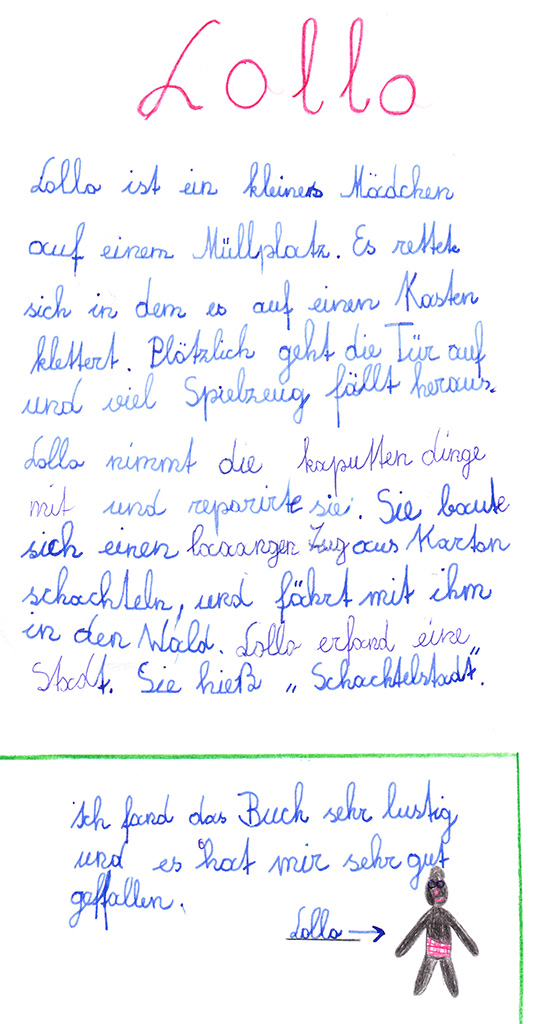 Lollo
Lollo ist ein kleines Mädchen
auf einem Müllplatz. Es rettet
sich in dem es auf einen Kasten
klettert. Plötzlich geht die Tür auf
und viel Spielzeug fällt heraus.
Lollo nimmt die kaputten dinge
mit und reparirte sie. Sie baute
sich einen laaaangen Zug aus Karton
schachteln, und fährt mit ihm
in den Wald. Lollo erfand eine
Stadt. Sie hieß „Schachtelstadt".
Ich fand das Buch sehr lustig
und es hat mir sehr gut
geffallen.
Lollo →